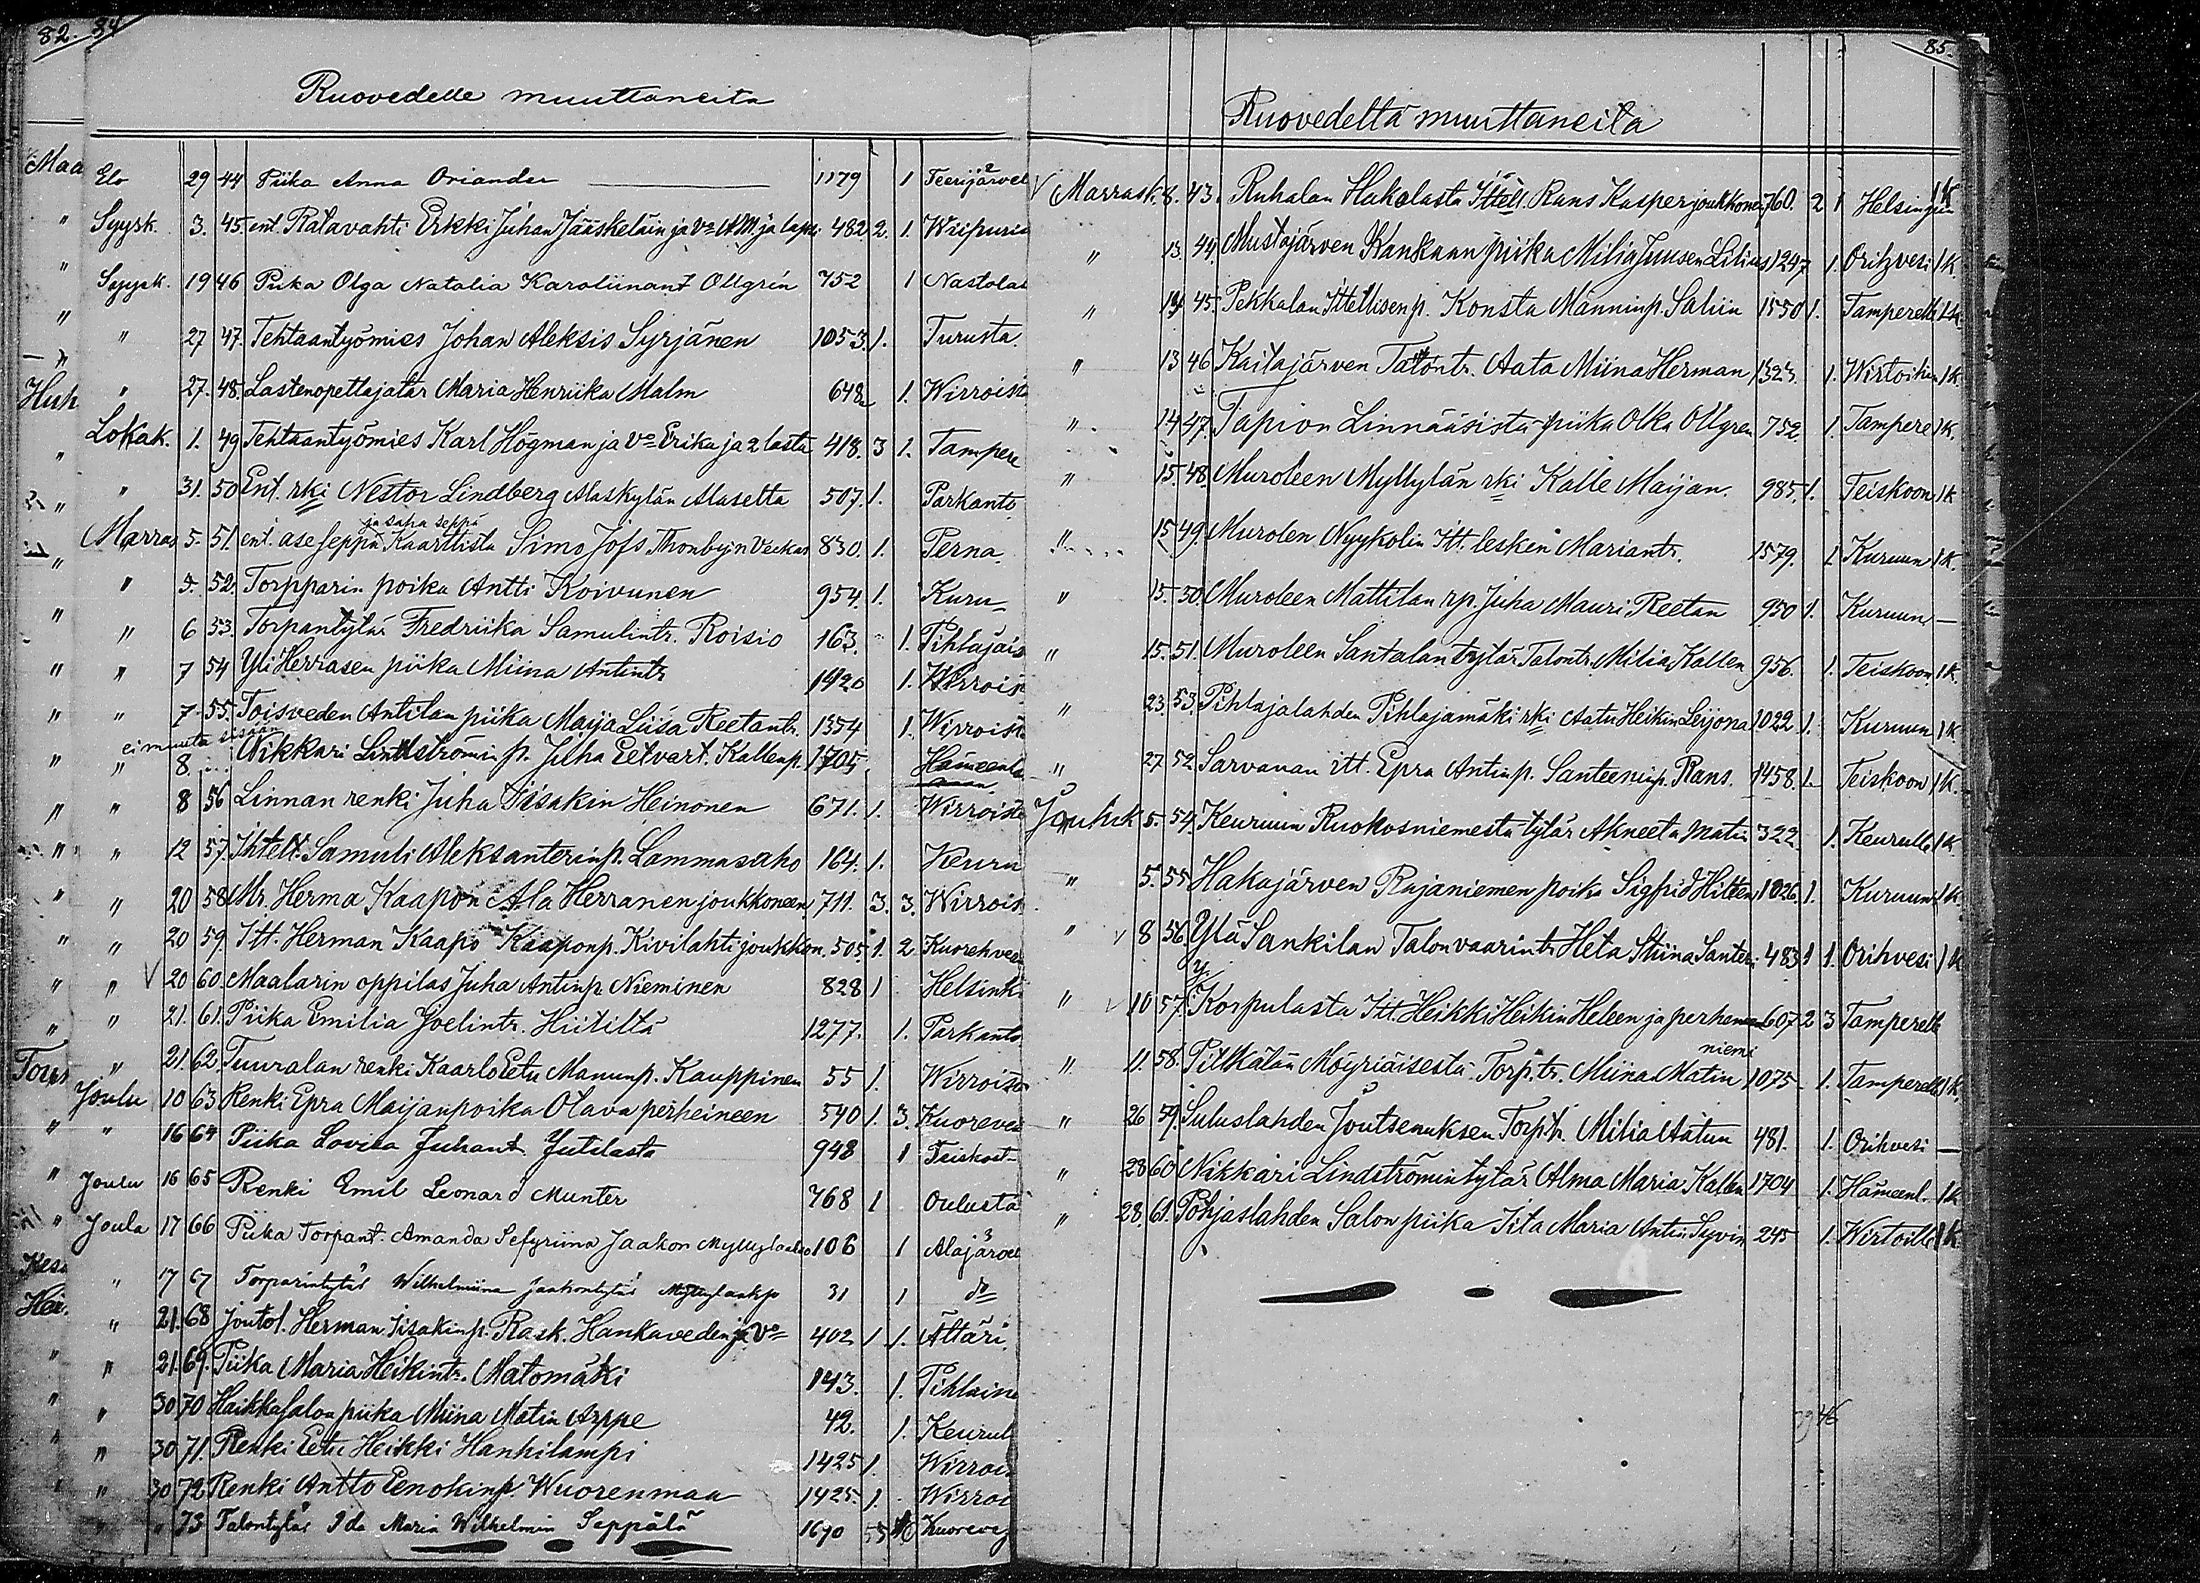 82. 84
Ruovedelle muuttaneita
Elo 29 44 Piika Anna Oriander 1179 1 Teerijärvel
Syysk. 3. 45. ent. Ratavahti Erkki Juhan Jääskeläin ja Vo A.M. ja lapsi 482 2. 1. Wiipuris
Syysk. 19 46 Piika Olga Natalia Karoliinant Ollgrén 752 1 Nastolas
" 27 47. Tehtaantyömies Johan Aleksis Syrjänen 1053. 1. Turusta.
" 27. 48. Lastenopettajatar Maria Henriika Malm 648 1. Wirroist
Lokak. 1. 49 Tehtaantyömies Karl Högman ja Vo Erika ja 2 lasta 418. 3 1. Tampere
" 31. 50 Ent. rki Nestor Lindberg Alaskylän Alaselta 507. 1. Parkanto
ja saha seppä
Marras 5. 51. ent. ase seppä Kaarttista Simo Jofs. Thonbyjn Veckas 830. 1. Perna.
" 5. 52. Torpparin poika Antti Koivunen 954. 1. Kuru
" 6 53. Torpantytär Fredriika Samulintr. Roisio 163. 1. Pihlajais
" 7 54 Yli Herrasen piika Miina Antintr 1420 1. Wirrois
" 7 55. Toisveden Antilan piika Maija Liisa Reetantr. 1354 1. Wirroist
ei muuta sisään
" 8 Nikkari Lindströmin p. Juha Eetvart. Kallenp. 1705 Hämeenl
" 8 56 Linnan renki Juha Iisakin Heinonen 671. 1. Wirroist
" 12 57. Ihtell. Samuli Aleksanterinp. Lammasaho 164. 1. Keuru
" 20 58 Mr. Herma Kaapon Ala Herranen joukkoneen 711. 3. 3. Wirrois
" 20 59. Itt. Herman Kaapo Kaaponp. Kivilahti joukkon. 505. 1. 2 Kuorehves
" V 20 60 Maalarin oppilas Juha Antinp. Nieminen 828 1 Helsinki
" 21. 61. Piika Emilia Joelintr. Hiitiltä 1277. 1. Parkanto
" 21. 62. Tuuralan renki Kaarlo Eetu Manunp. Kauppinen 55 1. Wirroist
Joulu 10 63 Renki Epra Maijanpoika Olava perheineen 540 1. 3. Kuoreves
" 16 64 Piika Lovisa Juhant. Jutilasta 948 1 Teiskost
Joulu 16 65 Renki Emil Leonard Munter 768 1 Oulusta
Joulu 17 66 Piika Torpant. Amanda Sefyriina Jaakon Myllylaakso 106 1 Alajärvel
" 17 67 Torparintytär Wilhelmiina Jaakontytär 31 1 do
" 21. 68 Joutol. Herman Iisakinp. Rask. Hankaveden ja Vo 402 1 1. Ättäri
" 21. 69. Piika Maria Heikintr. Matomäki 143. 1. Pihlaine
" 30 70 Haikka salon piika Miina Matin Arppe 42. 1. Keurul
" 30 71. Renki Eetu Heikki Hankilampi 1425 1. Wirrois
" 30 72 Renki Antto Eenokinp. Wuorenmaa 1425. 1. Wirroi
" " 73 Talontytär Ida Maria Wilhelmin Seppälä 1670 Kuorevej
85.
Ruovedeltä muuttaneita
V Marrask. 8. 43. Ruhalan Hakalasta Ittell. Rans Kasper joukkone 760. 2 1 Helsingin 1k
" 13. 44. Mustajärven Kankaan piika Milia Juusen Lilius 1247 1. Orihvesi 1k.
" 13 45. Pekkalan Ittellisen p. Konsta Manninp. Saliin 1550 1. Tamperelle 1k.
" 13 46 Kaitajärven Talontr. Aata Miina Herman 1323. 1. Wirtoihin 1k.
" 14 47. Tapion Linnaäsistä piika Olka Ollgren 752 1. Tampere 1k.
" 15 48. Muroleen Myllylän rki Kalle Maijan. 985. 1. Teiskoon 1k
" 15 49. Murolen Nyykolin Itt. lesken Mariantr. 1579. 1 Kuruun 1k.
" 15. 50. Muroleen Mattilan rp. Juha Mauri Reetan 950 1. Kuruun —
" 15. 51. Muroleen Santalan tytär Talontr. Milia Kallen 956. 1. Teiskoon 1k.
" 23. 53. Pihlajalahden Pihlajamäki rki Aatu Heikin Leijona 1022 1. Kuruun 1k.
" 27 52 Sarvanan itt. Epra Antinp. Santeeninp. Rans. 1458. 1. Teiskoon 1k.
Jouluk 5. 54. Keuruun Ruokosniemestä tytär Akneeta Matin 322 1. Keurulle 1k.
" 5. 55 Hakajärven Rajaniemen poika Sigfrid Hilten 1026. 1. Kuruun 1k
" V 8 56. Ylä Sankilan Talonvaarintr. Heta Stiina Santeri 483 1 1. Orihvesi 1k
" V 10 57. Y. Korpulasta Itt. Heikki Heikin Heleen ja perhe 607 2 3 Tamperelle
niemi
" 11. 58. Pitkälän Möyriäisestä Torp. tr. Miina Matin 1075 1. Tamperelle 1k.
" 26 59. Suluslahden Joutsenuksen Torp. tr. Milia Aatun 481. 1. Orihvesi —
" 28 60 Nikkari Lindströmin tytär Alma Maria Kallen 1704 1. Hämeenl. 1k
" 28 61. Pohjaslahden Salon piika Iita Maria Antin Syvin 245 1. Wirtoille 1k